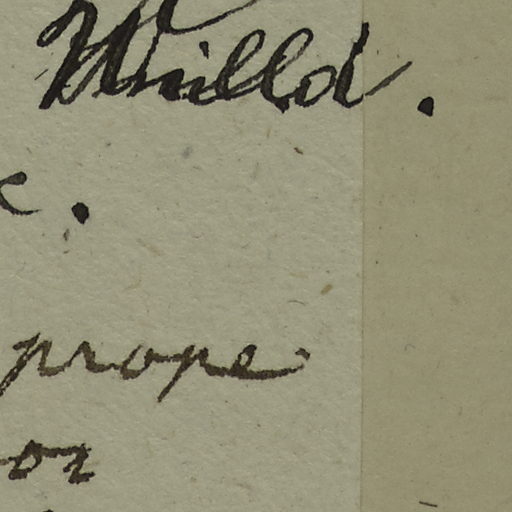 Willd.
c.
prope
or